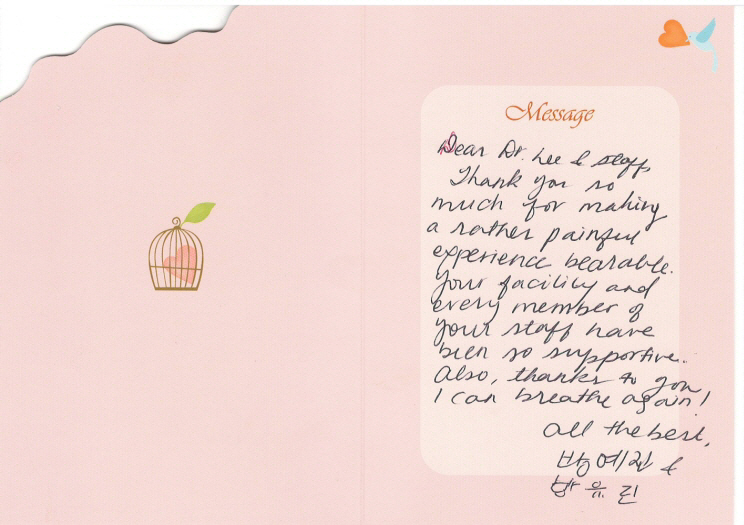 Message
Dear Dr. Lee & staff,
Thank you so
much for making
a rather painful
experience bearable.
Your facility and
every member of
your staff have
been so supportive.
Also, thanks to you,
I can breathe again!
All the best,
방예진 &
방유린